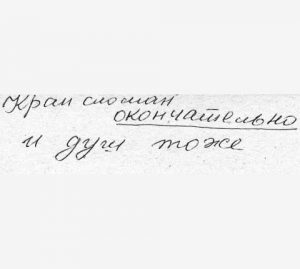 Кран сломан
окончательно
и душ тоже